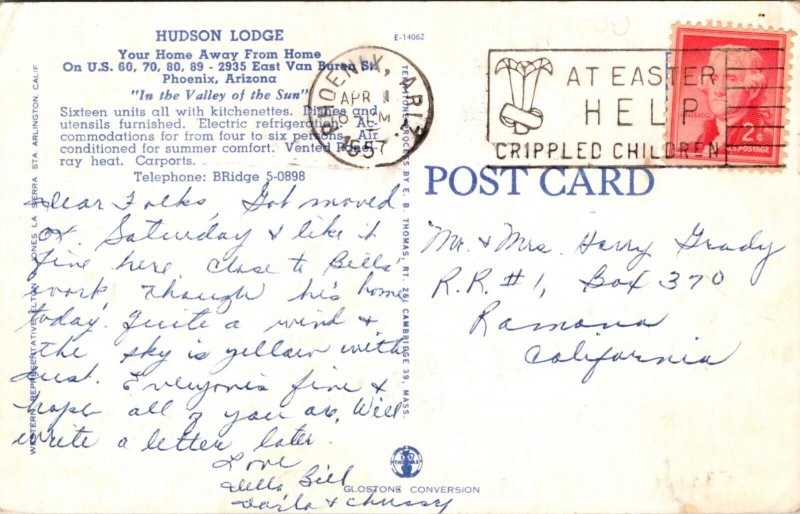 HUDSON LODGE
E-14062
Your Home Away From Home
On U.S. 60, 70, 80, 89 - 2935 East Van Buren St.
Phoenix, Arizona
"In the Valley of the Sun"
Sixteen units all with kitchenettes. Dishes and
utensils furnished. Electric refrigeration. Ac-
commodations for from four to six persons. Air
conditioned for summer comfort. Vented Panel-
ray heat. Carports.
Telephone: BRidge 5-0898
PHOENIX, ARIZ.
APR 1
PM
1957
AT EASTER
HELP
CRIPPLED CHILDREN
2¢
U.S. POSTAGE
POST CARD
Dear Folks, Got moved
Saturday & like it
fine here close to Bills
work, though he's home
today. Quite a wind &
the sky is yellow with
dust. Everyone's fine &
hope all of you are, Will
write a letter later.
Love
Della Bill
Darla & Chussy
Mr. & Mrs. Harry Grady
R.R. #1, Box 370
Ramona
California
WESTERN REPRESENTATIVE ELTON JONES LA SIERRA STA. ARLINGTON, CALIF
BY E. B. THOMAS, RT. 26, CAMBRIDGE 39, MASS.
GLOSTONE CONVERSION